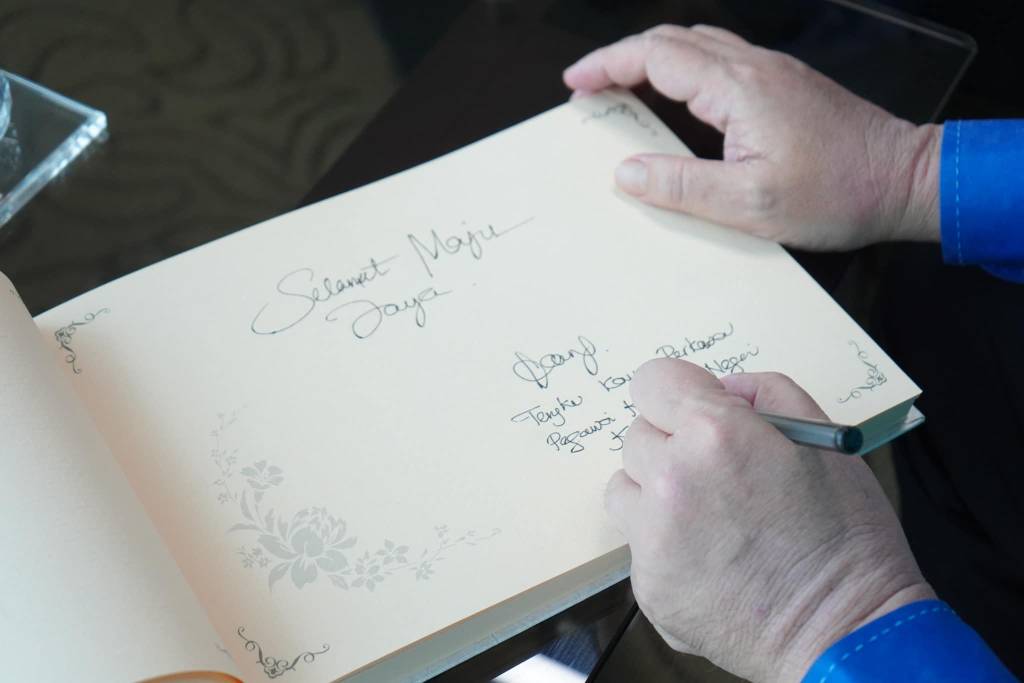 Selamat Maju
Jaya.
Tengku Perkasa
Pegawai Negeri